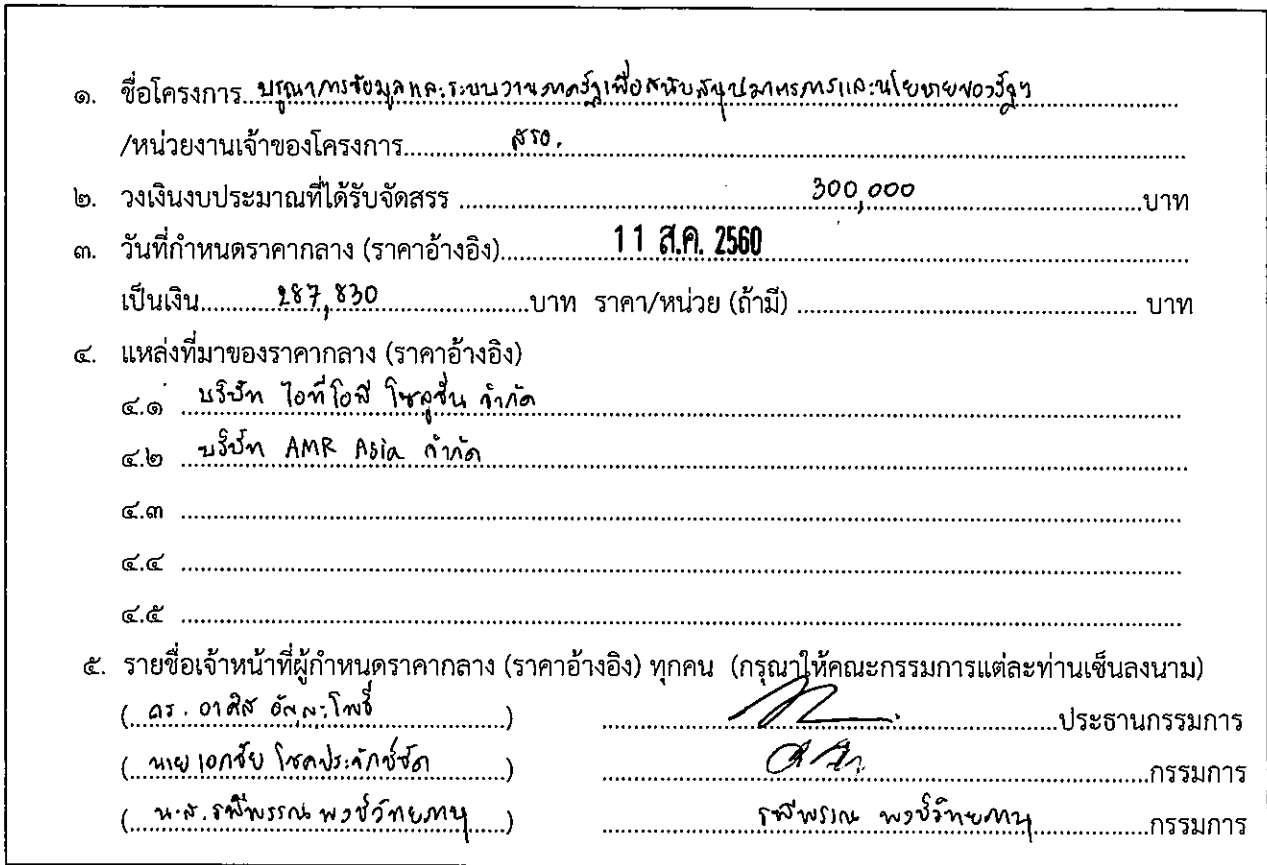 ๑. ชื่อโครงการ บูรณาการข้อมูลและระบบงานภาครัฐเพื่อสนับสนุนมาตรการและนโยบายของรัฐฯ
/หน่วยงานเจ้าของโครงการ สรอ.
๒. วงเงินงบประมาณที่ได้รับจัดสรร 300,000 บาท
๓. วันที่กำหนดราคากลาง (ราคาอ้างอิง) 11 ส.ค. 2560
เป็นเงิน 287,830 บาท ราคา/หน่วย (ถ้ามี) บาท
๔. แหล่งที่มาของราคากลาง (ราคาอ้างอิง)
๔.๑ บริษัท ไอทีโอซี โซลูชั่น จำกัด
๔.๒ บริษัท AMR Asia จำกัด
๔.๓
๔.๔
๔.๕
๕. รายชื่อเจ้าหน้าที่ผู้กำหนดราคากลาง (ราคาอ้างอิง) ทุกคน (กรุณาให้คณะกรรมการแต่ละท่านเซ็นลงนาม)
( ดร. อาศิส อัญญะโพธิ์ ) ประธานกรรมการ
( นาย เอกชัย โชคประจักษ์ชัด ) กรรมการ
( น.ส. รพีพรรณ พงษ์วิทยภานุ ) รพีพรรณ พงษ์วิทยภานุ กรรมการ